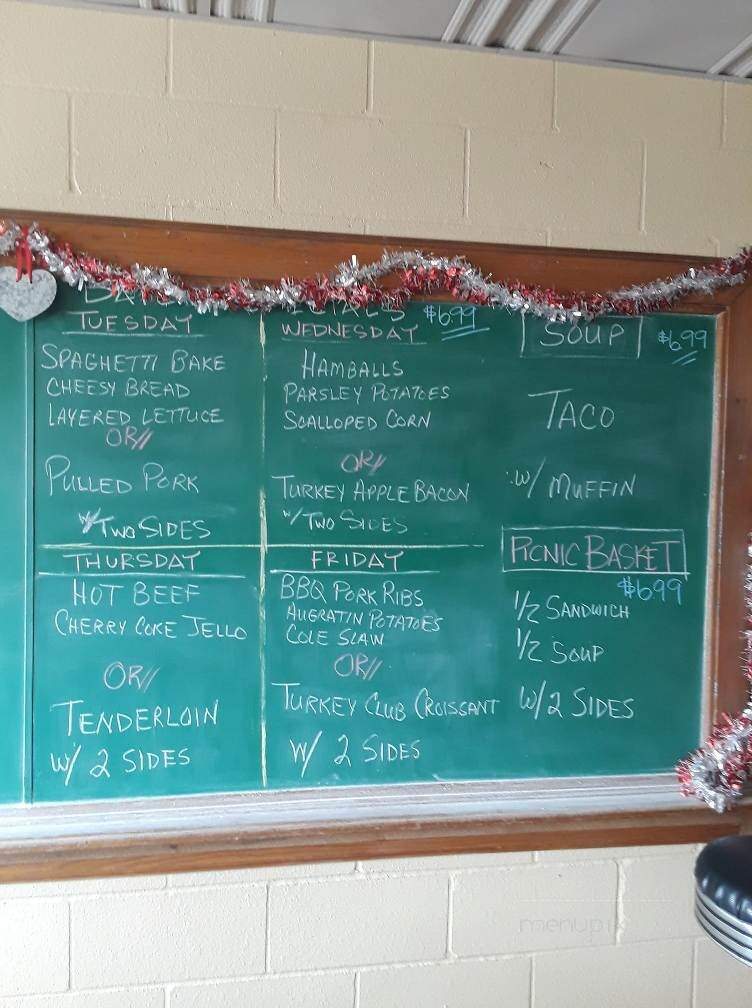 TUESDAY
SPAGHETTI BAKE
CHEESY BREAD
LAYERED LETTUCE
OR//
PULLED PORK
W/ TWO SIDES
$6.99
WEDNESDAY
HAMBALLS
PARSLEY POTATOES
SCALLOPED CORN
OR/
TURKEY APPLE BACON
W/ TWO SIDES
SOUP
$6.99
TACO
W/ MUFFIN
THURSDAY
HOT BEEF
CHERRY COKE JELLO
OR//
TENDERLOIN
W/ 2 SIDES
FRIDAY
BBQ PORK RIBS
AUGRATIN POTATOES
COLE SLAW
OR//
TURKEY CLUB CROISSANT
W/ 2 SIDES
PICNIC BASKET
$6.99
1/2 SANDWICH
1/2 SOUP
W/ 2 SIDES